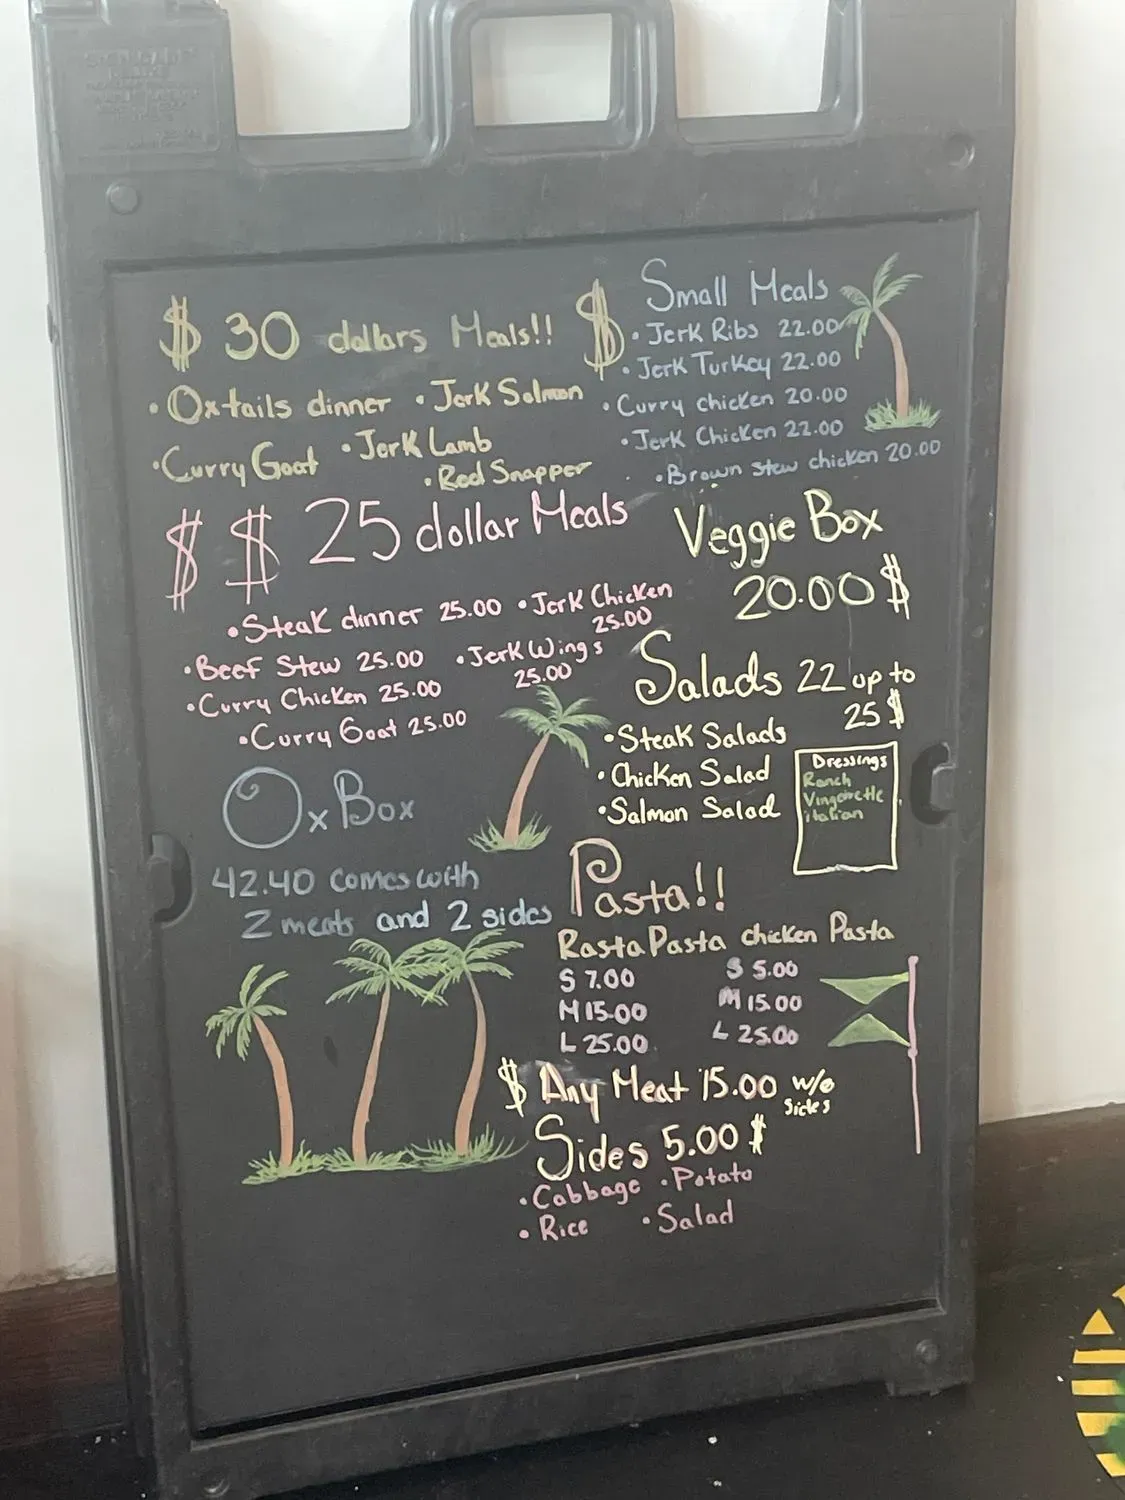 $ 30 dollars Meals!!
• Oxtails dinner • Jerk Salmon
• Curry Goat • Jerk Lamb
• Red Snapper
$ Small Meals
• Jerk Ribs 22.00
• Jerk Turkey 22.00
• Curry chicken 20.00
• Jerk Chicken 22.00
• Brown stew chicken 20.00
$ $ 25 dollar Meals
• Steak dinner 25.00 • Jerk Chicken
25.00
• Beef Stew 25.00 • Jerk Wings
25.00
• Curry Chicken 25.00
• Curry Goat 25.00
Veggie Box
20.00 $
Salads 22 up to
25 $
• Steak Salads
• Chicken Salad
• Salmon Salad
Dressings
Ranch
italian
Ox Box
42.40 comes with
2 meats and 2 sides
Pasta!!
Rasta Pasta chicken Pasta
S 7.00 S 5.00
M 15.00 M 15.00
L 25.00 L 25.00
$ Any Meat 15.00 w/o
Sides
Sides 5.00 $
• Cabbage • Potato
• Rice • Salad